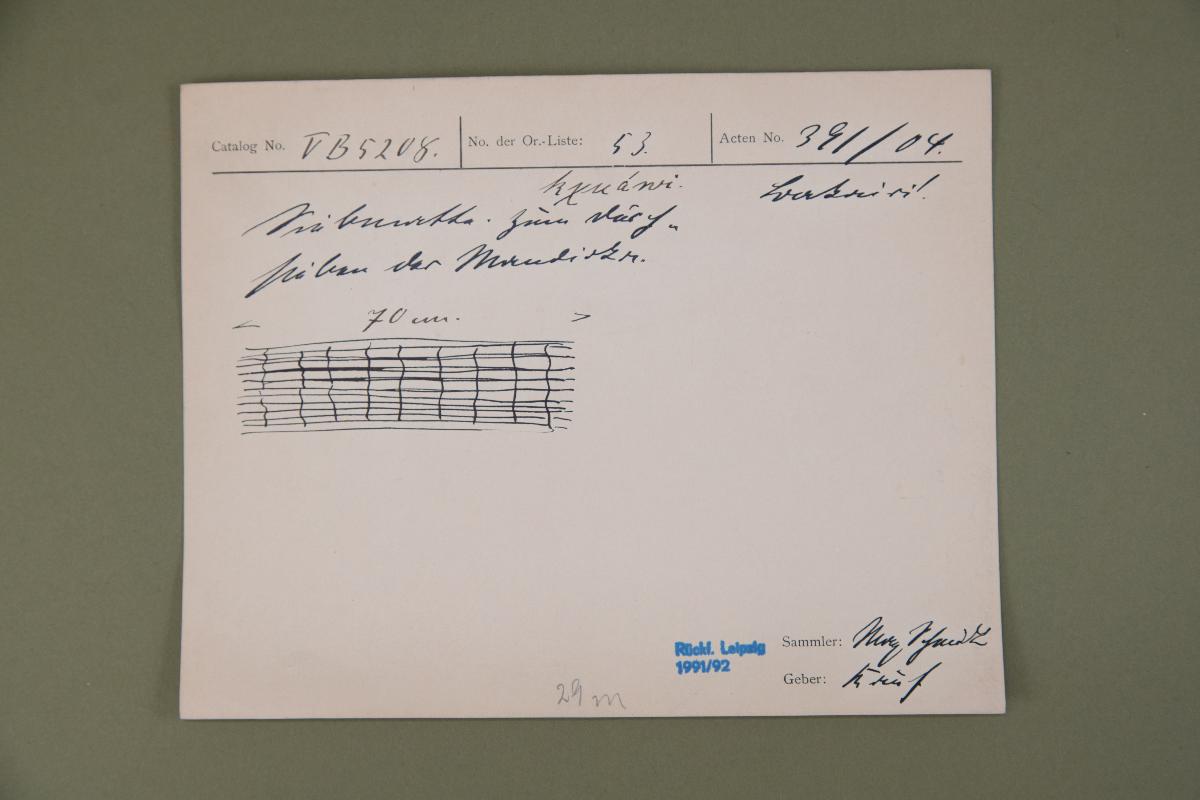 Catalog No. VB5208. No. der Or.-Liste: 53. Acten No. 391//04.
kxuánri. Bakairi!
Siebmatte. zum Durch„
sieben der Mandioka.
< 70 cm. >
Rückf. Leipzig
1991/92
Sammler: Max Schmidt
Geber: Kauf
29 m